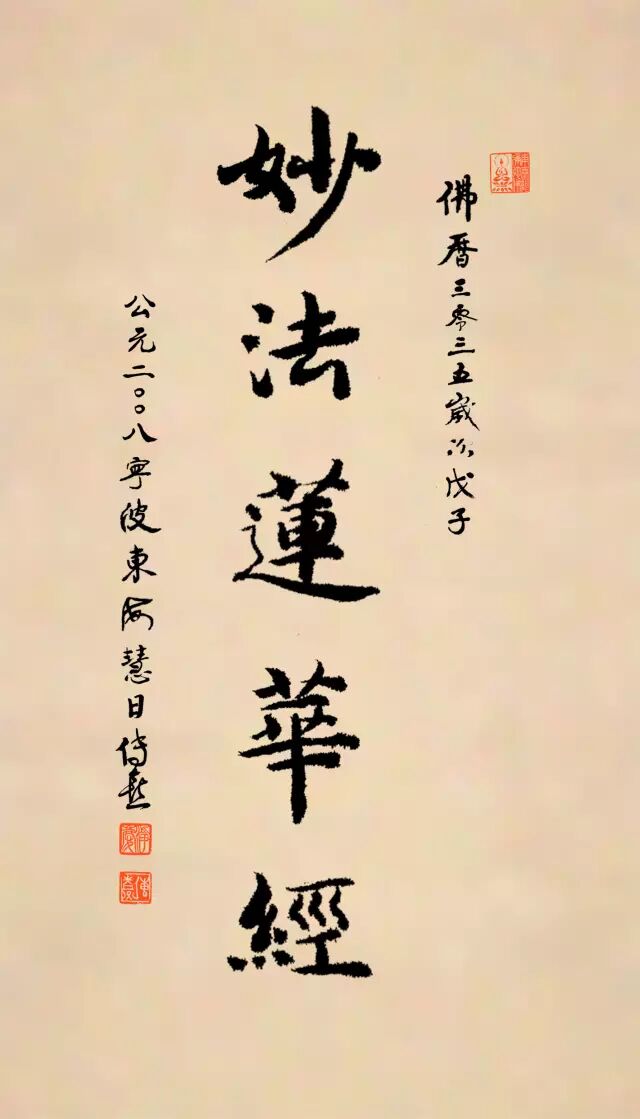 佛曆三零三五歲次戊子
妙法蓮華經
公元二〇〇八寧波東海慧日傳